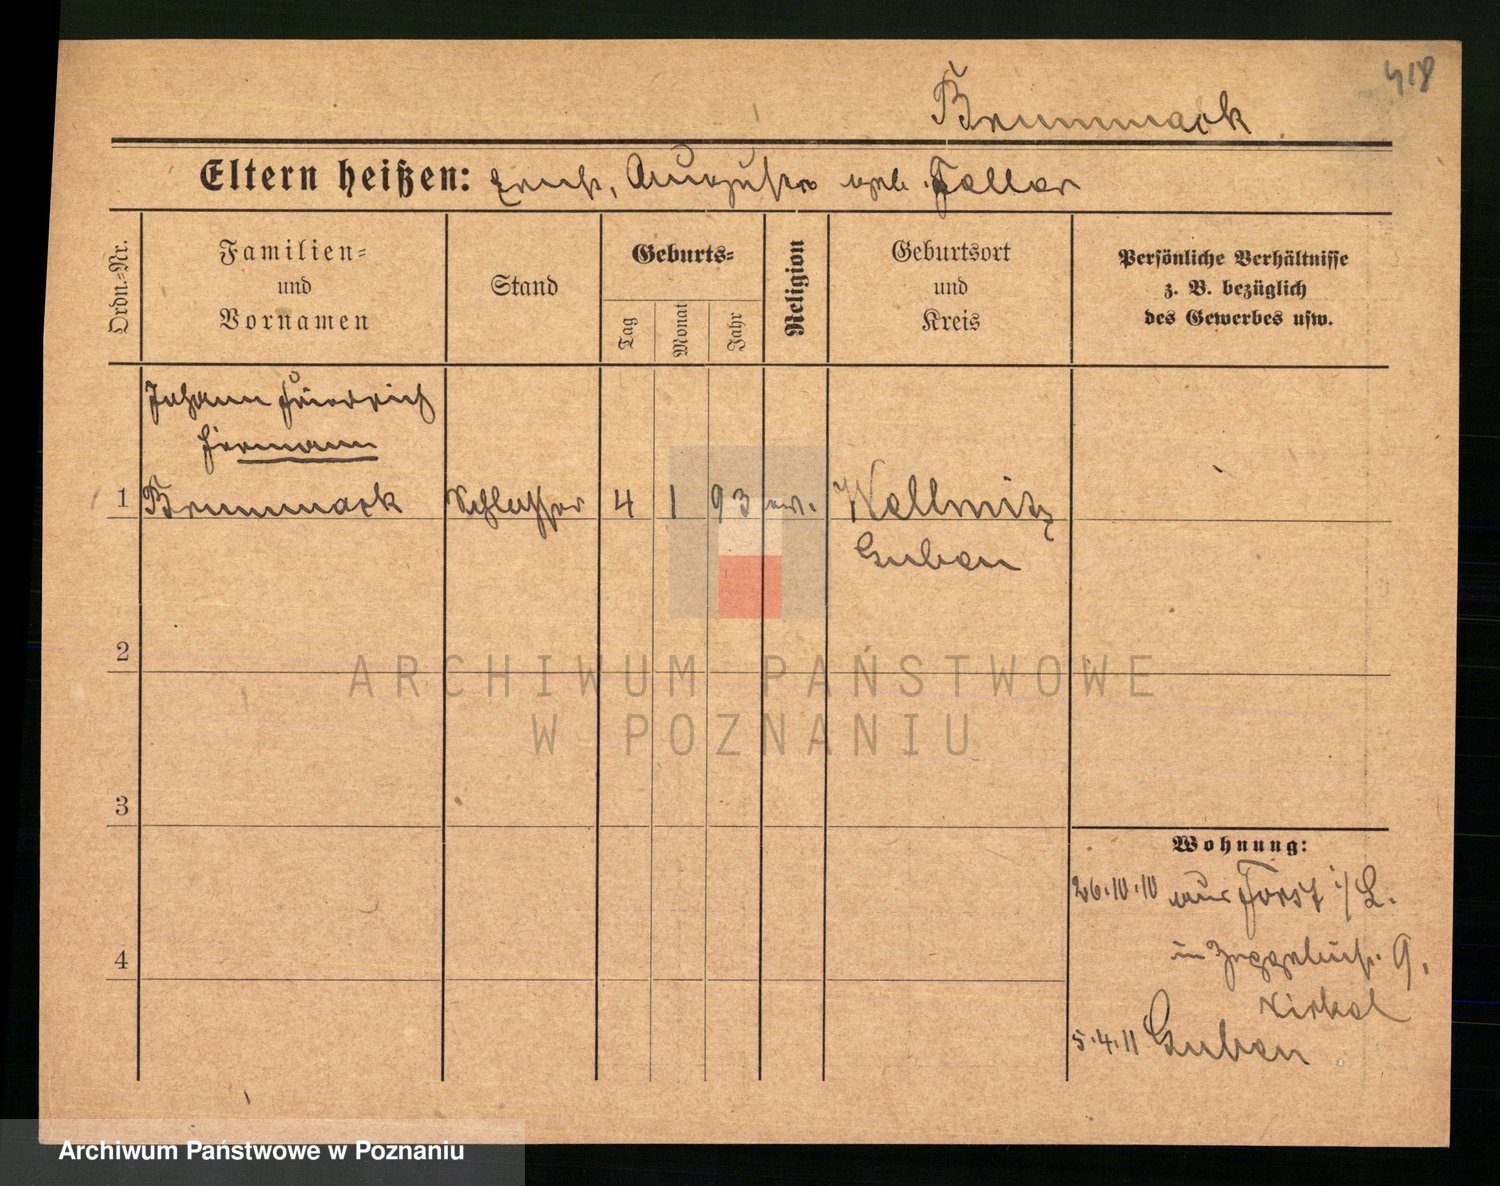 418
Brummack
Eltern heißen: Ernst, Auguste geb. Feller
Ordn.-Nr.
Familien-
und
Vornamen
Stand
Geburts-
Tag
Monat
Jahr
Religion
Geburtsort
und
Kreis
Persönliche Verhältnisse
z. B. bezüglich
des Gewerbes usw.
Johann Friedrich
Hermann
1 Brummack Schlosser 4 1 93 ev. Wellmitz
Guben
2
3
4
Wohnung:
26.10.10 aus Forst i/L.
in 9,
5.4.11 Guben
ARCHIWUM PAŃSTWOWE
W POZNANIU
Archiwum Państwowe w Poznaniu